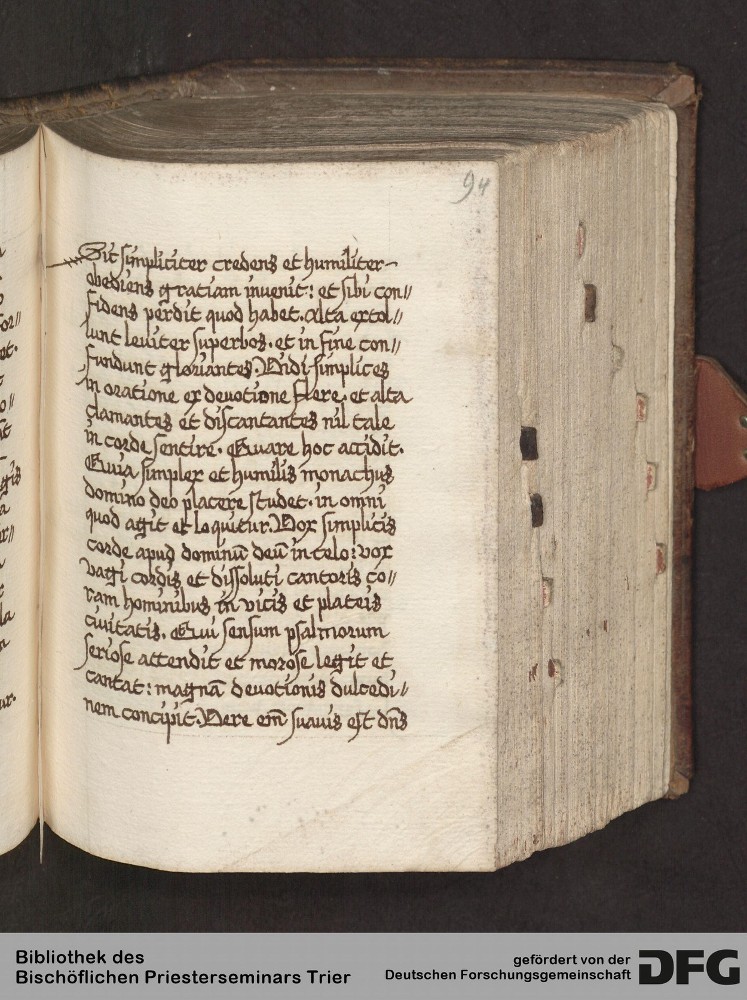 94
Sic simpliciter credens et humiliter
obediens gratiam invenit: et sibi con//
fidens perdit quod habet. Alta extol//
lunt leviter superbos. et in fine con//
fundunt gloriantes. Vidi simplices
in oratione ex devotione flere. et alta
clamantes et discantantes nil tale
in corde sentire. Quare hoc accidit.
Quia simplex et humilis monachus
domino deo placere studet. in omni
quod agit et loquitur. Vox simplicis
corde apud dominū deū in celo: vox
vagi cordis et dissoluti cantoris co//
ram hominibus in vicis et plateis
civitatis. Qui sensum psalmorum
seriose attendit et morose legit et
cantat: magnā devotionis dulcedi//
nem concipit. Vere em̄ suavis est dn̄s
Bibliothek des
Bischöflichen Priesterseminars Trier
gefördert von der
Deutschen Forschungsgemeinschaft
DFG